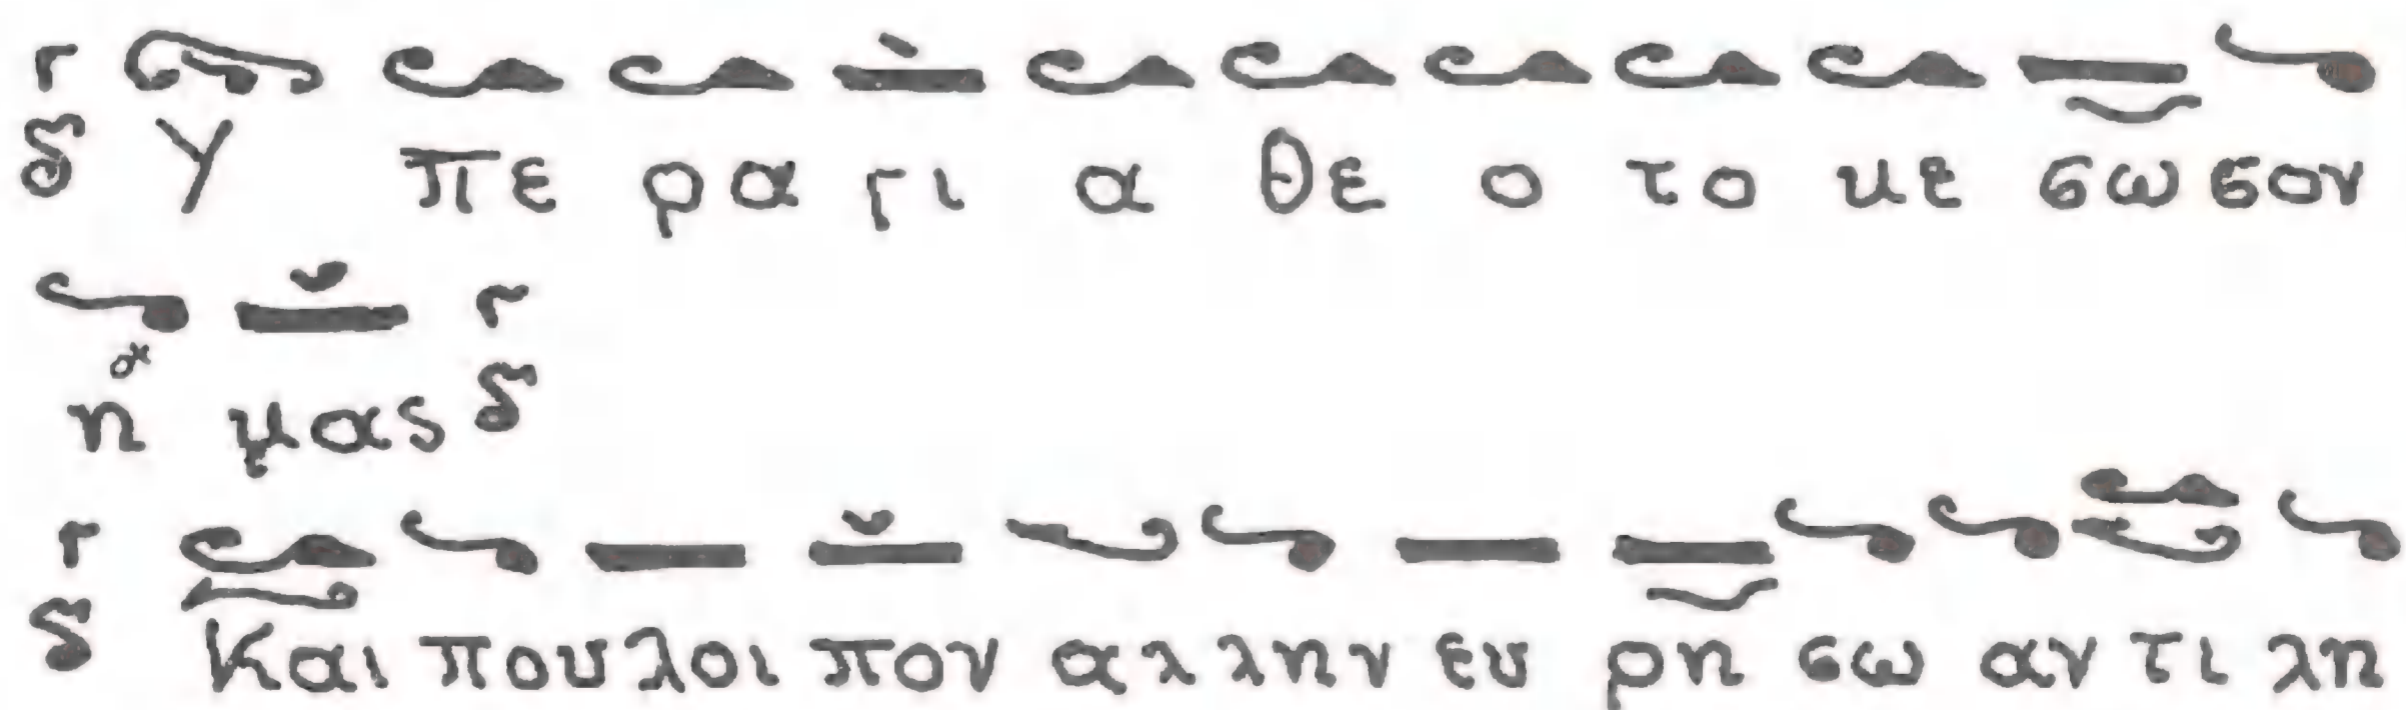 Γ
δ Υ πε ρα γι α θε ο το κε σω σον
η μας Γ
δ
Γ
δ Και που λοι πον αλ λην ευ ρη σω αν τι λη